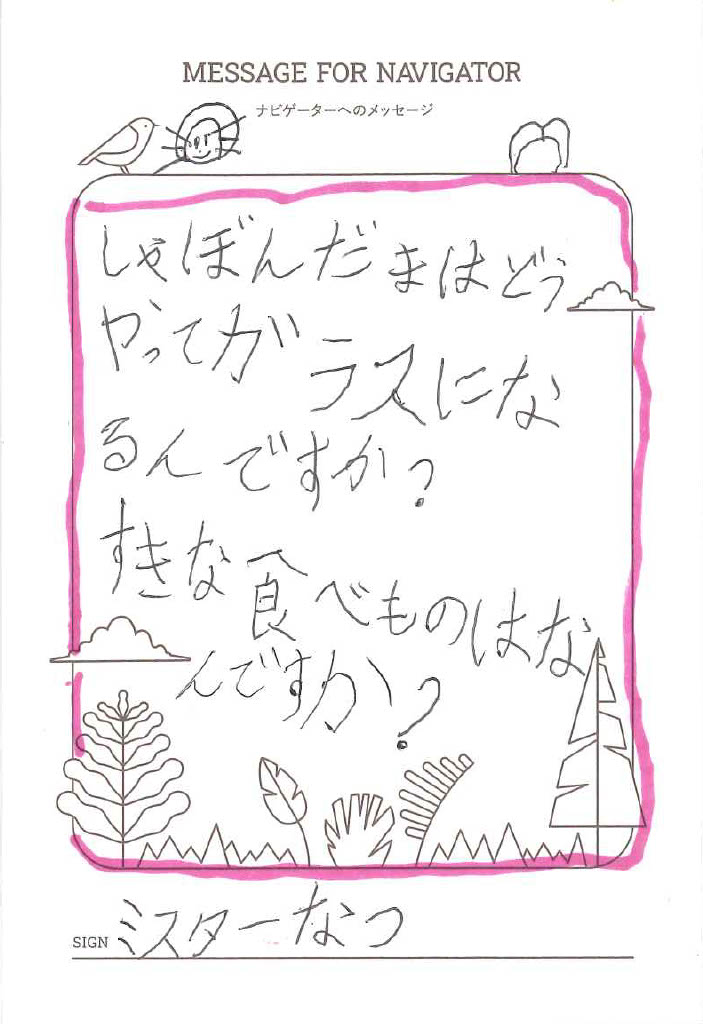 MESSAGE FOR NAVIGATOR
ナビゲーターへのメッセージ
しゃぼんだまはどう
やってガラスにな
るんですか?
すきな食べものはな
んですか?
SIGN ミスターなつ